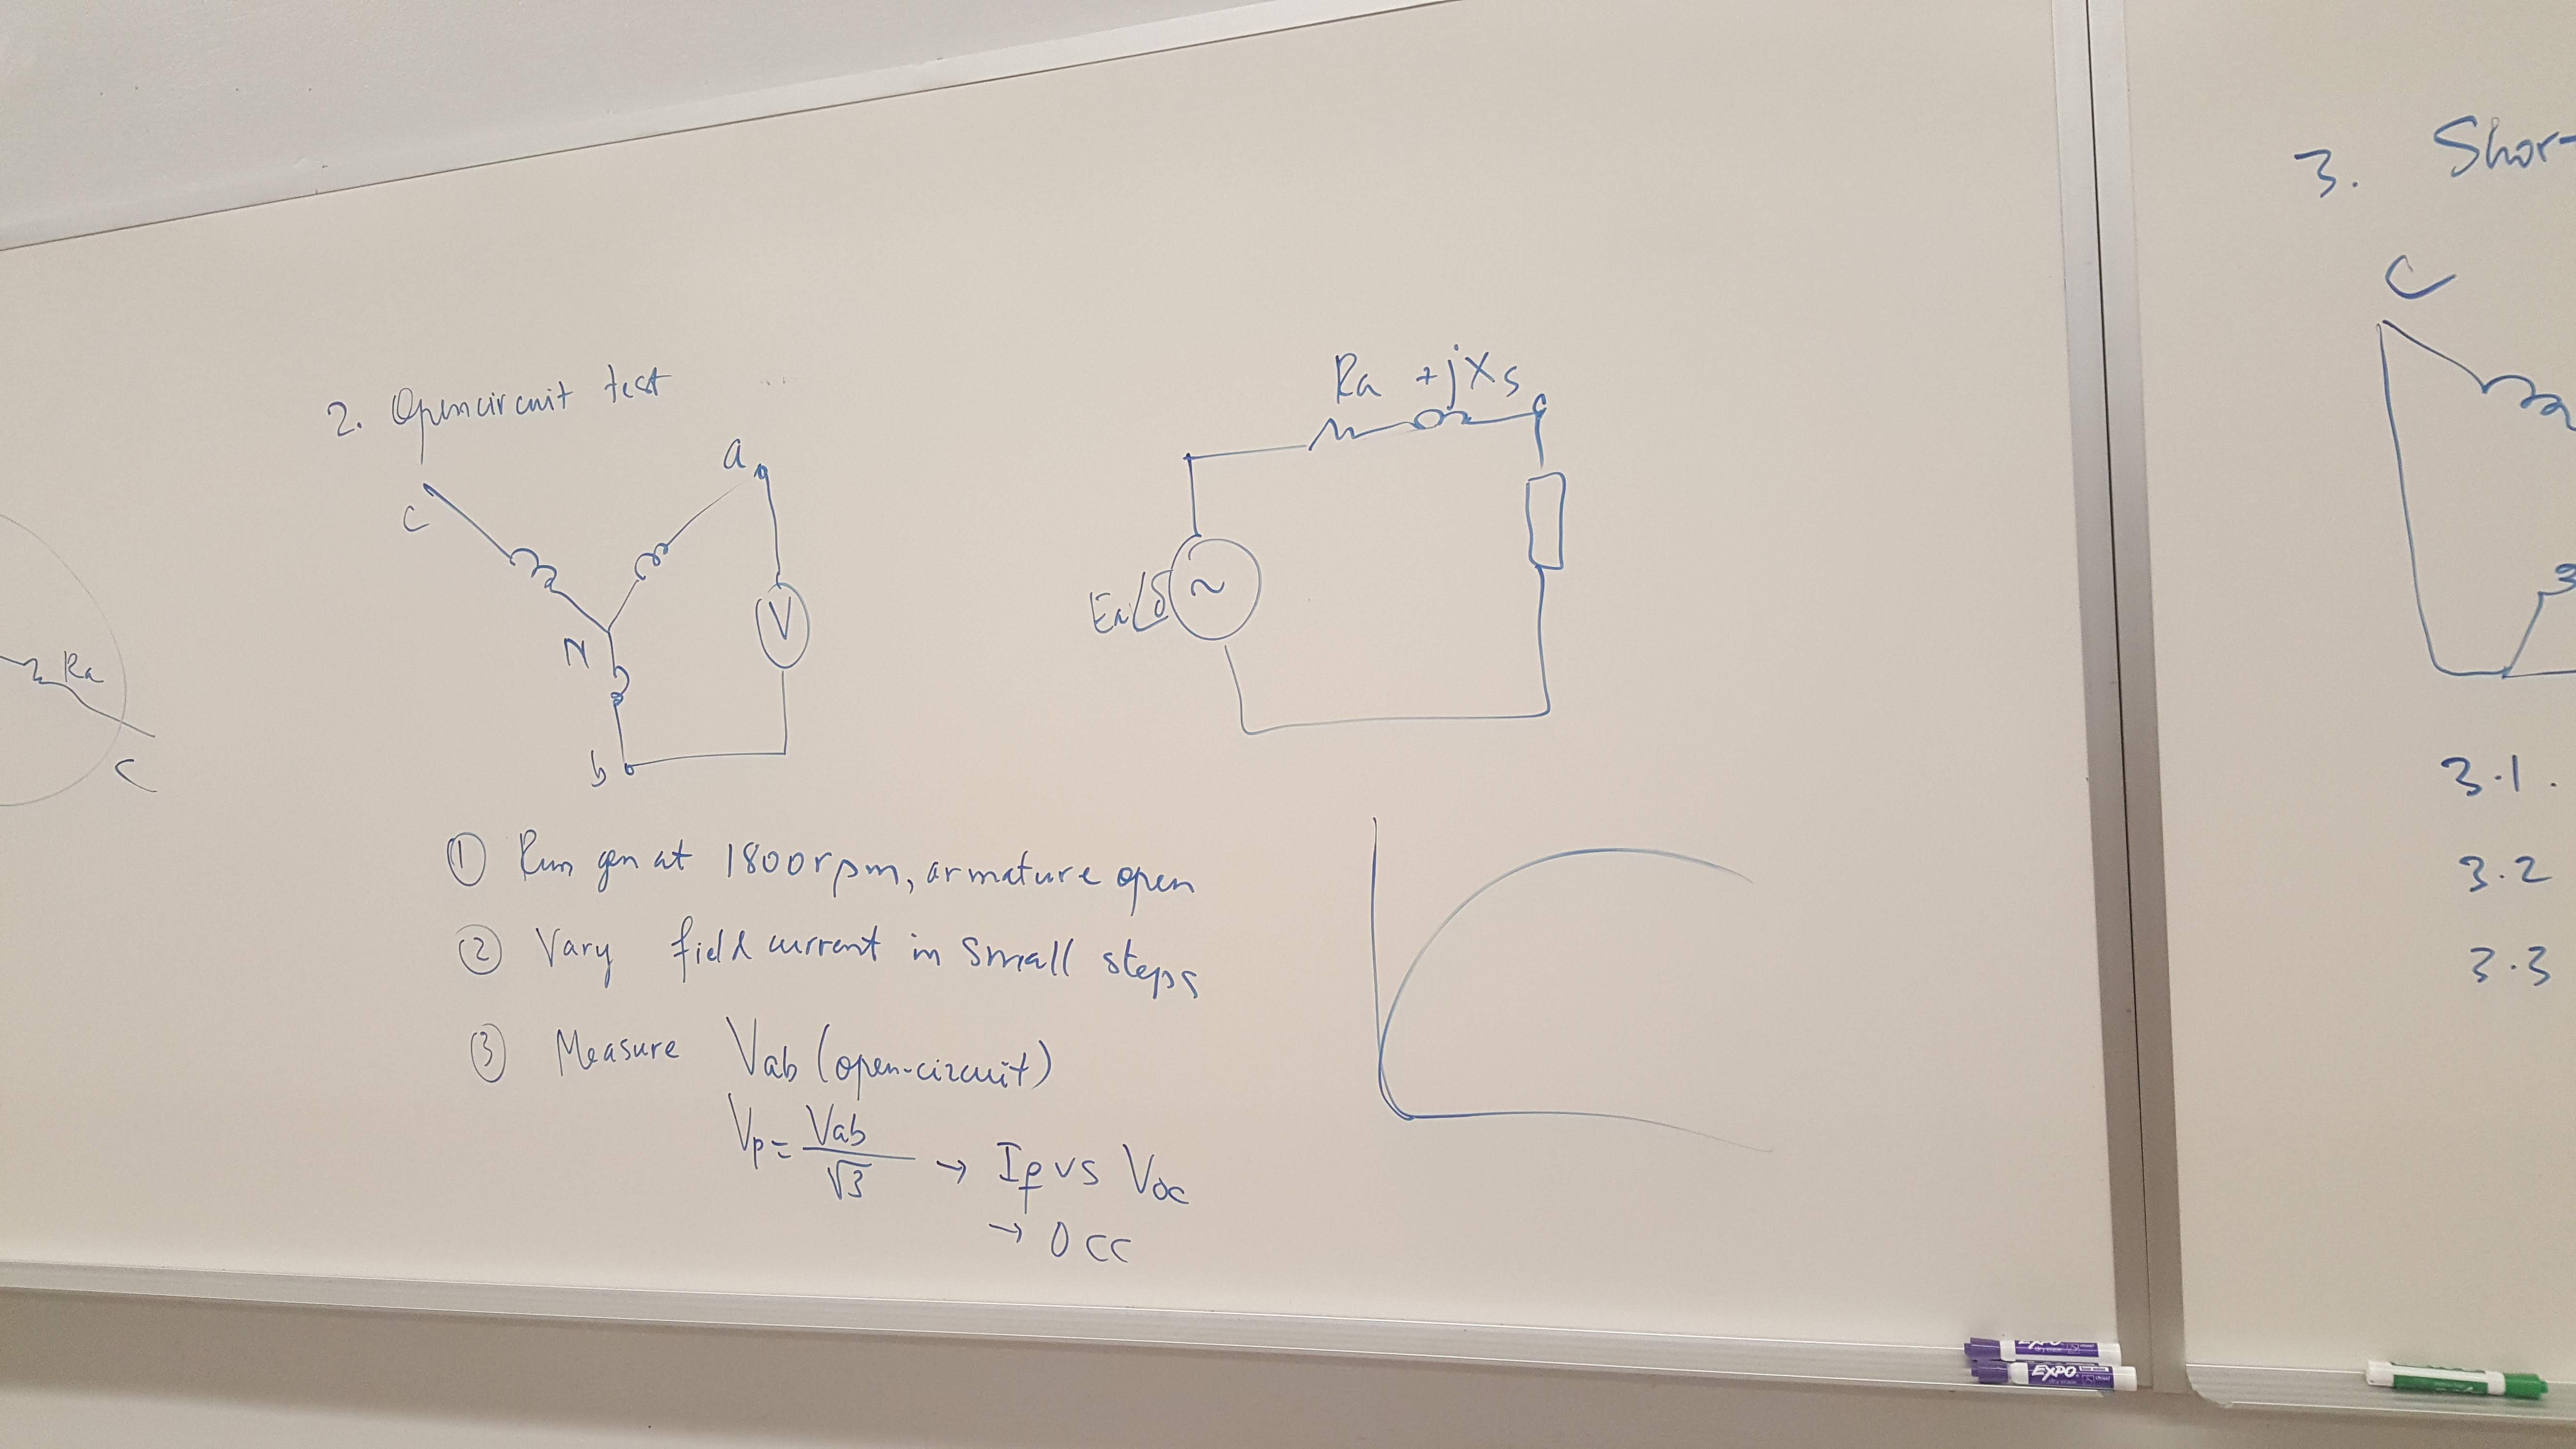 2. Opencircuit test
c
a
N
V
b
Ra
C
Ra + jXs
Ea∠δ
~
① Run gen at 1800rpm, armature open
② Vary field current in small steps
③ Measure Vab (open-circuit)
Vp = Vab / √3 → If vs Voc
→ OCC
3. Shor
C
3.1.
3.2
3.3
EXPO
EXPO